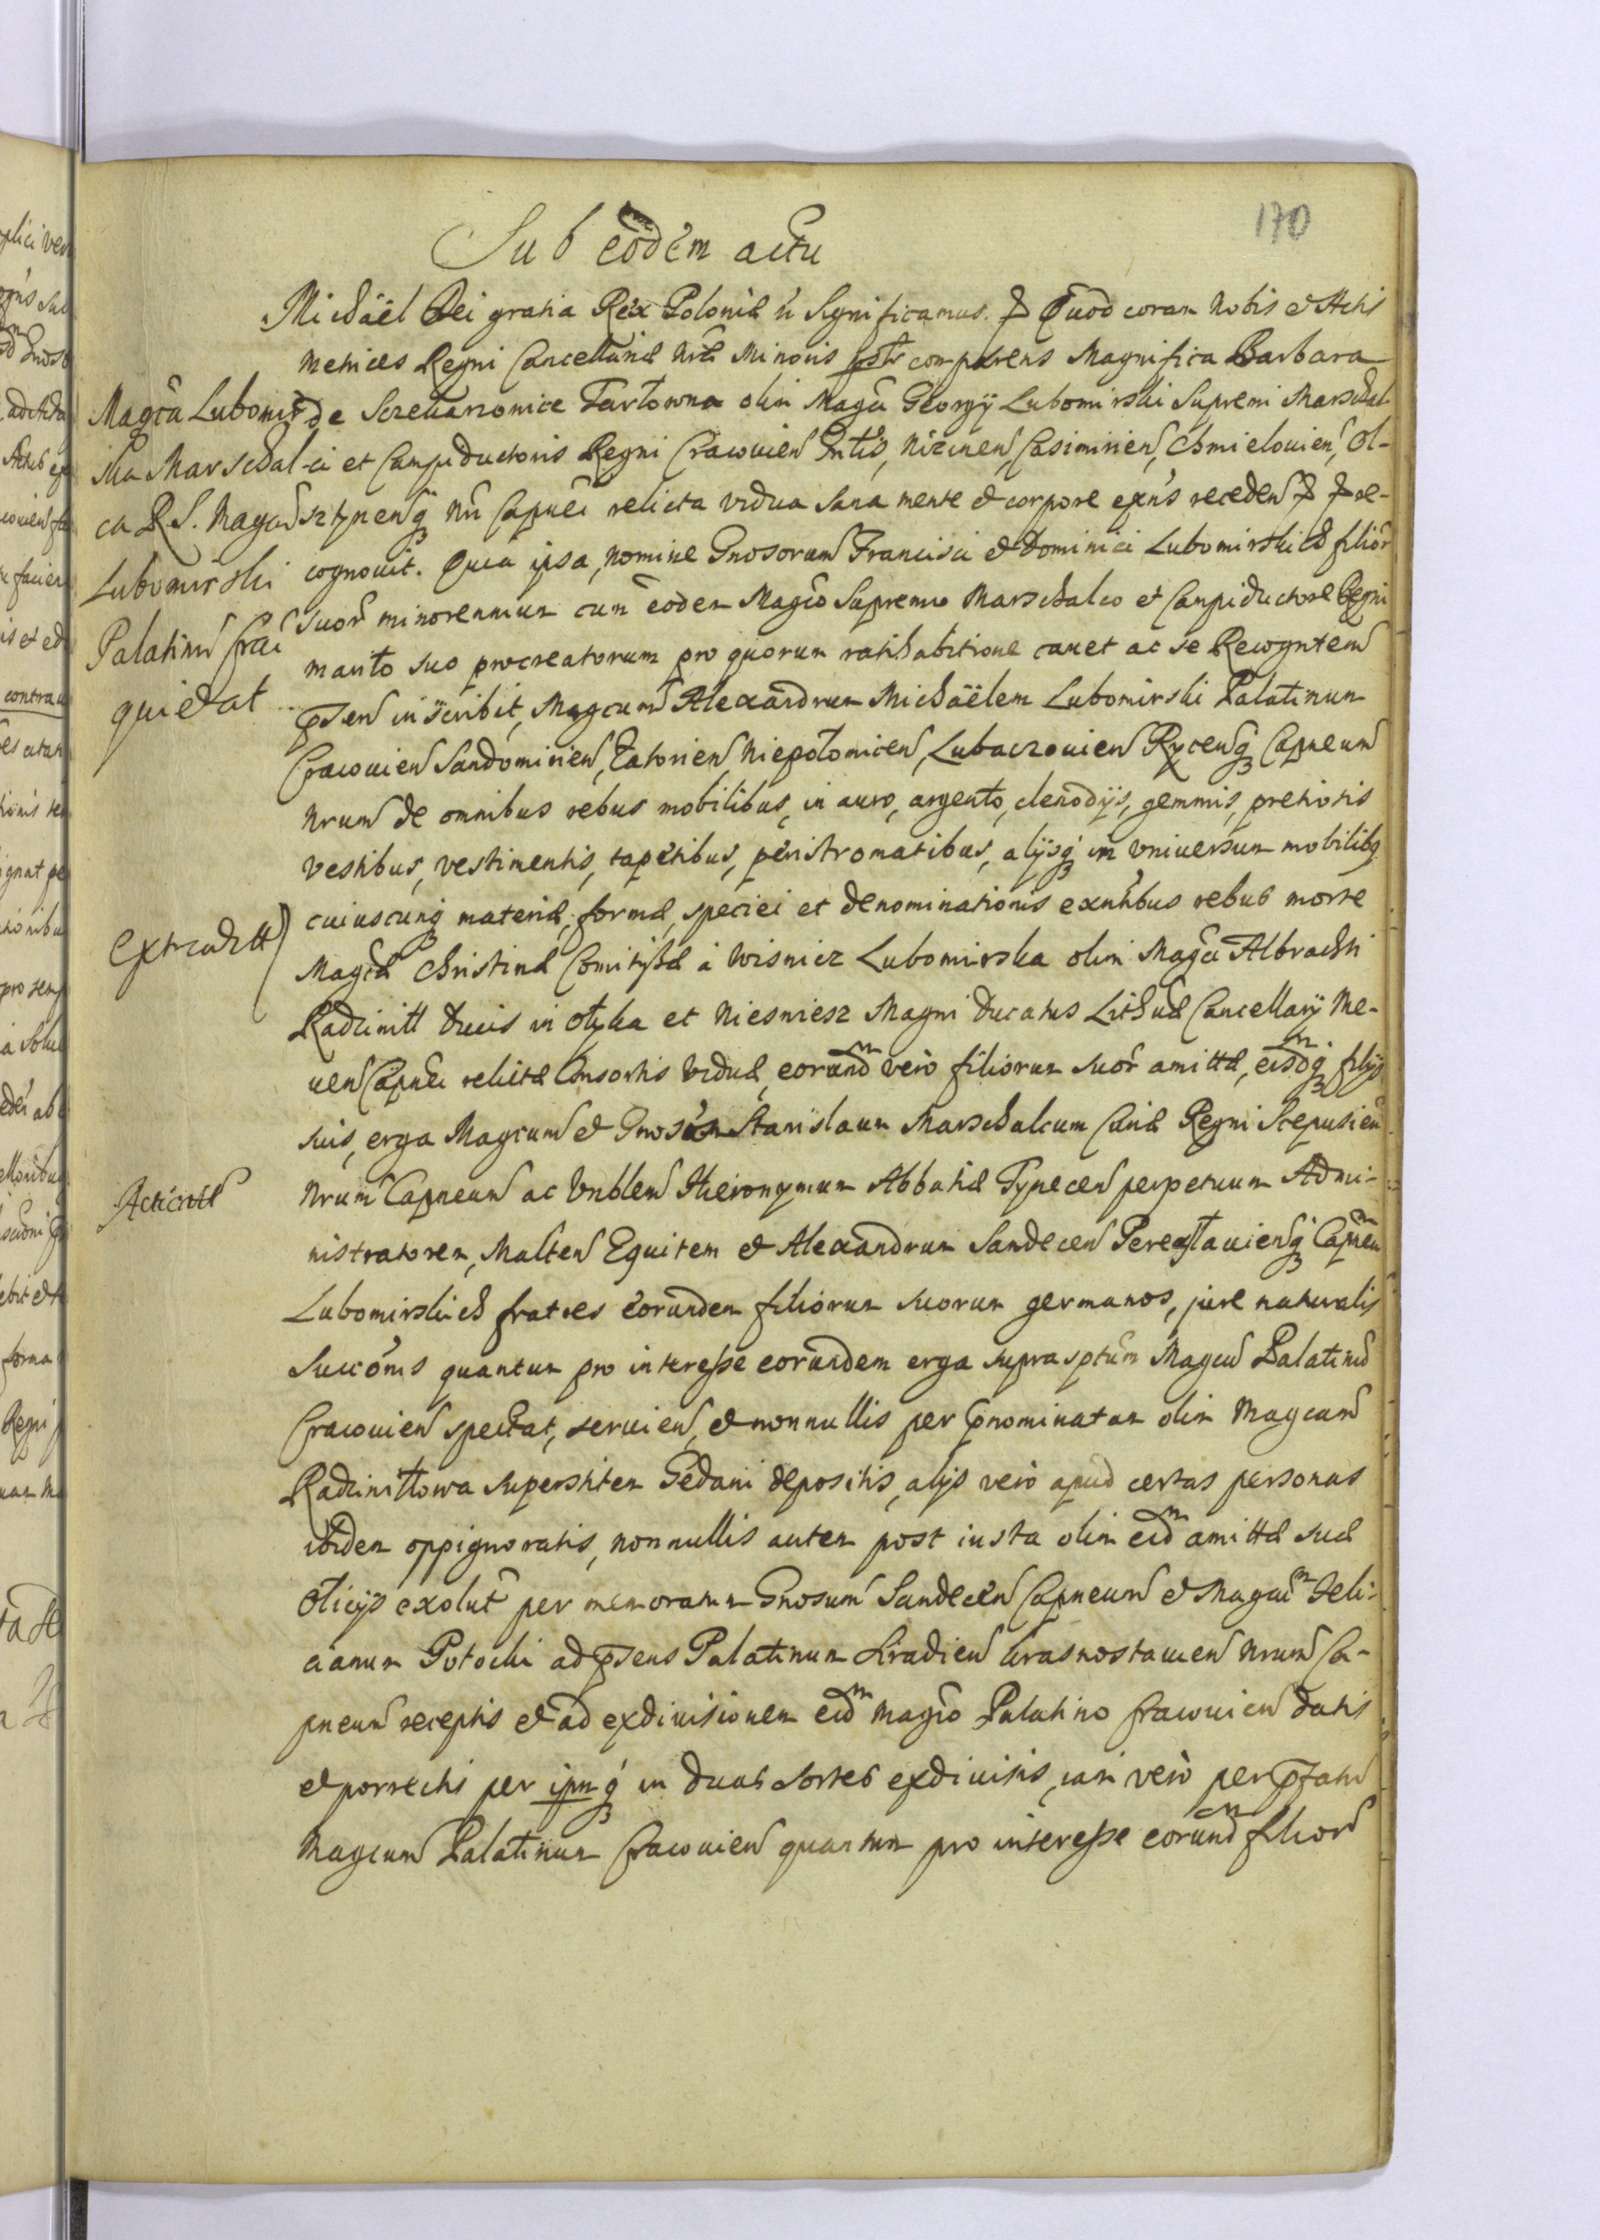 170
Sub eodem actu
Michäel Dei gratia Rex Poloniæ &c Significamus. Quod coram Nobis et Actis
Metrices Regni Cancellariæ Nræ Minoris comparens Magnifica Barbara
de Szczekarzowice Tarłowna olim Magci Georgij Lubomirski Supremi Marschal-
ci et Campiductoris Regni Cracovien Gnlis, Niżinen, Casimirien, Chmielovien, Ol-
sztynenq Nri Capnei relicta vidua sana mente et corpore exns receden re-
cognovit. Quia ipsa, nomine Gnosorum Francisci et Dominici Lubomirskich filior
suor minorennium cum eodem Magco Supremo Marschalco et Campiductore Regni
marito suo procreatorum pro quorum ratihabitione cavet ac se Recogntem
psen inscribit, Magcum Alexandrum Michäelem Lubomirski Palatinum
Cracovien Sandomirien, Zatorien Niepołomicen, Lubaczovien Rycenq Capneum
Nrum de omnibus rebus mobilibus, in auro, argento, clenodijs, gemmis, pretiosis
vestibus, vestimentis, tapetibus, peristromatibus, alijsq in universum mobilibq
cuiuscunq materiæ, formæ, speciei et denominationis exntibus rebus morte
Magcæ Christinæ Comitissæ à Wisnicz Lubomirska olim Magci Albrachti
Radziwiłł Ducis in Ołyka et Niesniesz Magni Ducatus Lithuæ Cancellarij Me-
uen Capnei relictæ Consortis Viduæ, eorund vero filiorum suor amittæ, eisdq filijs
suis, erga Magcum et Gnosum Stanislaum Marschalcum Curiæ Regni Scepusien
Nrum Capneum ac Vnblem Hieronymum Abbatiæ Tynecen perpetuum Admi-
nistratorem, Malten Equitem et Alexandrum Sandecen Pereasłavienq Capneu
Lubomirskich fratres eorundem filiorum suorum germanos, jure naturalis
Succonis quantum pro interesse eorundem erga suprasptum Magcu Palatinu
Cracovien spectat, servien, et nonnullis per pnominatam olim Magcam
Radziwiłłowa superstitem Gedani depositis, alijs vero apud certas personas
ibidem oppignoratis, nonnullis autem post iusta olim eid amittæ suæ
Olicijs exolut per memoratum Gnosum Sandecen Capneum et Magcu Feli-
cianum Potocki ad psens Palatinum Siradien Krasnostavien Nrum Ca-
pneum receptis et ad exdivisionem eid Magco Palatino Cracovien datis
et porrectis per ipmq in duas sortes exdivisis, iam vero per pfatu
Magcum Palatinum Cracovien quantum pro interesse eorund filior
Magca Lubomir
ska Marschal-
ca R S. Magcu
Lubomirski
Palatinu Crac
quietat
Extradtt
Acticatt